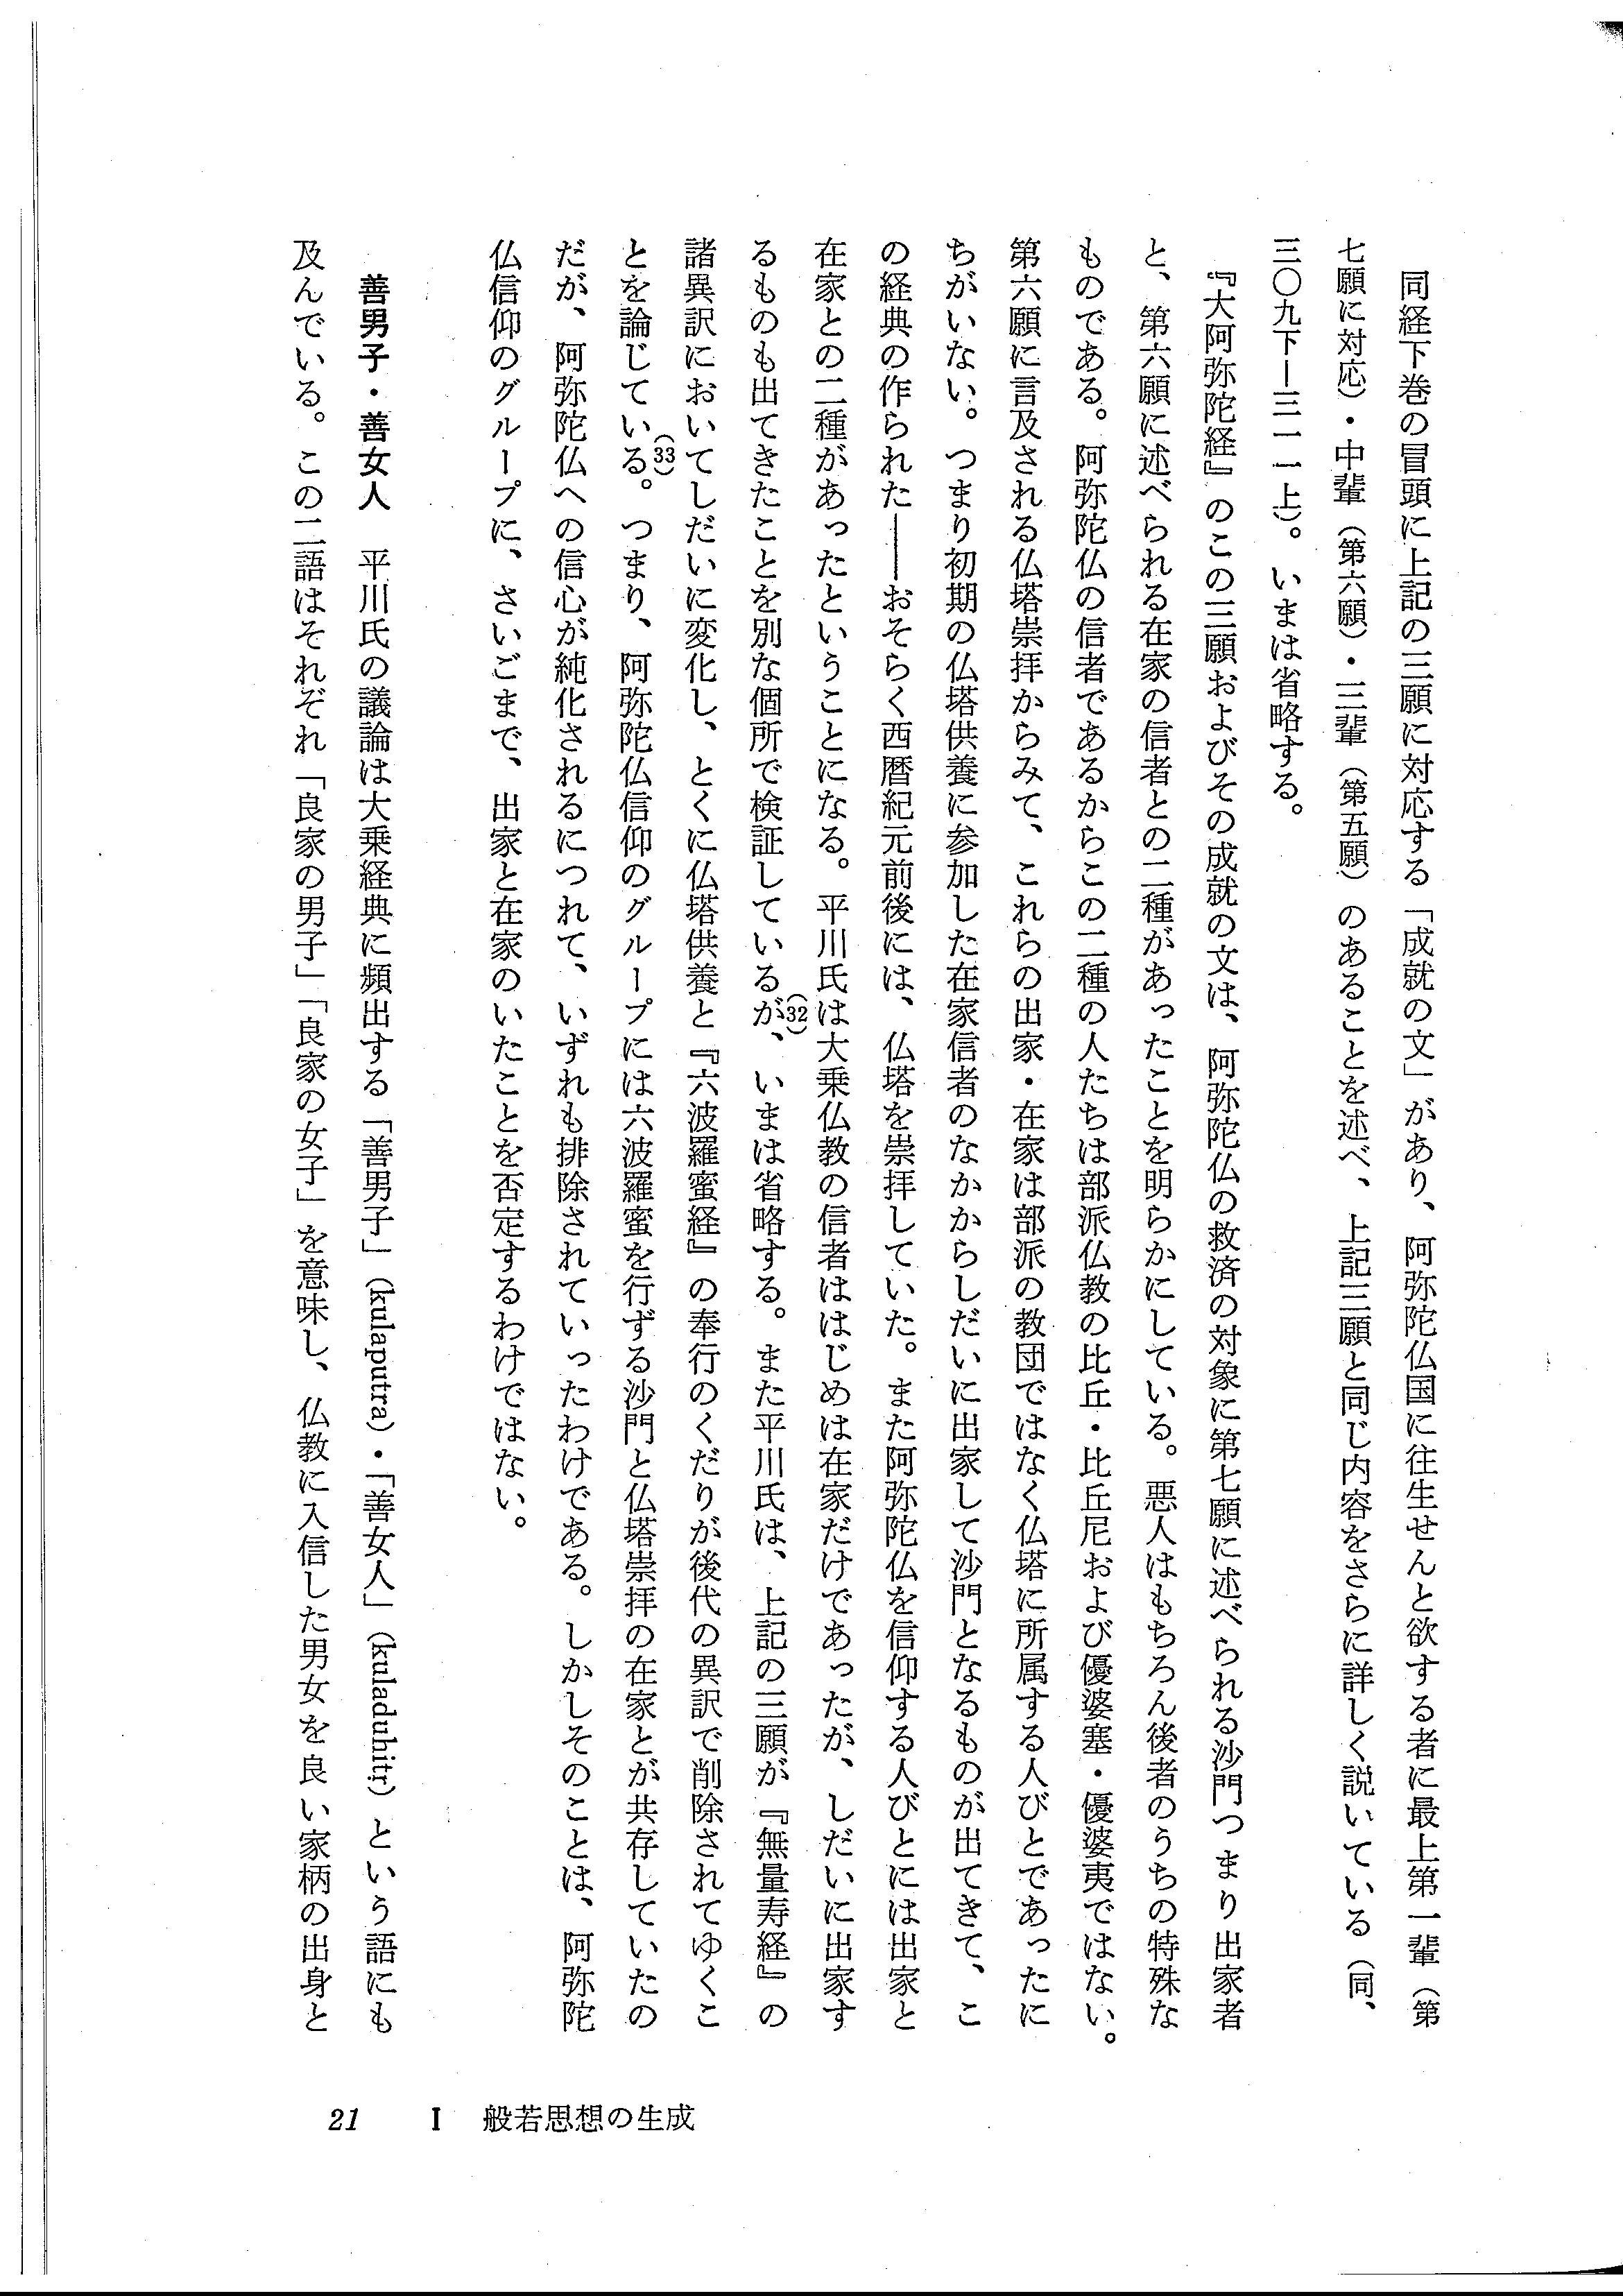 同経下巻の冒頭に上記の三願に対応する「成就の文」があり、阿弥陀仏国に往生せんと欲する者に最上第一輩（第
七願に対応）・中輩（第六願）・三輩（第五願）のあることを述べ、上記三願と同じ内容をさらに詳しく説いている（同、
三〇九下―三一一上）。いまは省略する。
『大阿弥陀経』のこの三願およびその成就の文は、阿弥陀仏の救済の対象に第七願に述べられる沙門つまり出家者
と、第六願に述べられる在家の信者との二種があったことを明らかにしている。悪人はもちろん後者のうちの特殊な
ものである。阿弥陀仏の信者であるからこの二種の人たちは部派仏教の比丘・比丘尼および優婆塞・優婆夷ではない。
第六願に言及される仏塔崇拝からみて、これらの出家・在家は部派の教団ではなく仏塔に所属する人びとであったに
ちがいない。つまり初期の仏塔供養に参加した在家信者のなかからしだいに出家して沙門となるものが出てきて、こ
の経典の作られた――おそらく西暦紀元前後には、仏塔を崇拝していた。また阿弥陀仏を信仰する人びとには出家と
在家との二種があったということになる。平川氏は大乗仏教の信者ははじめは在家だけであったが、しだいに出家す
るものも出てきたことを別な個所で検証しているが(32)、いまは省略する。また平川氏は、上記の三願が『無量寿経』の
諸異訳においてしだいに変化し、とくに仏塔供養と『六波羅蜜経』の奉行のくだりが後代の異訳で削除されてゆくこ
とを論じている(33)。つまり、阿弥陀仏信仰のグループには六波羅蜜を行ずる沙門と仏塔崇拝の在家とが共存していたの
だが、阿弥陀仏への信心が純化されるにつれて、いずれも排除されていったわけである。しかしそのことは、阿弥陀
仏信仰のグループに、さいごまで、出家と在家のいたことを否定するわけではない。
善男子・善女人　平川氏の議論は大乗経典に頻出する「善男子」（kulaputra）・「善女人」（kuladuhitṛ）という語にも
及んでいる。この二語はそれぞれ「良家の男子」「良家の女子」を意味し、仏教に入信した男女を良い家柄の出身と
21　Ⅰ　般若思想の生成